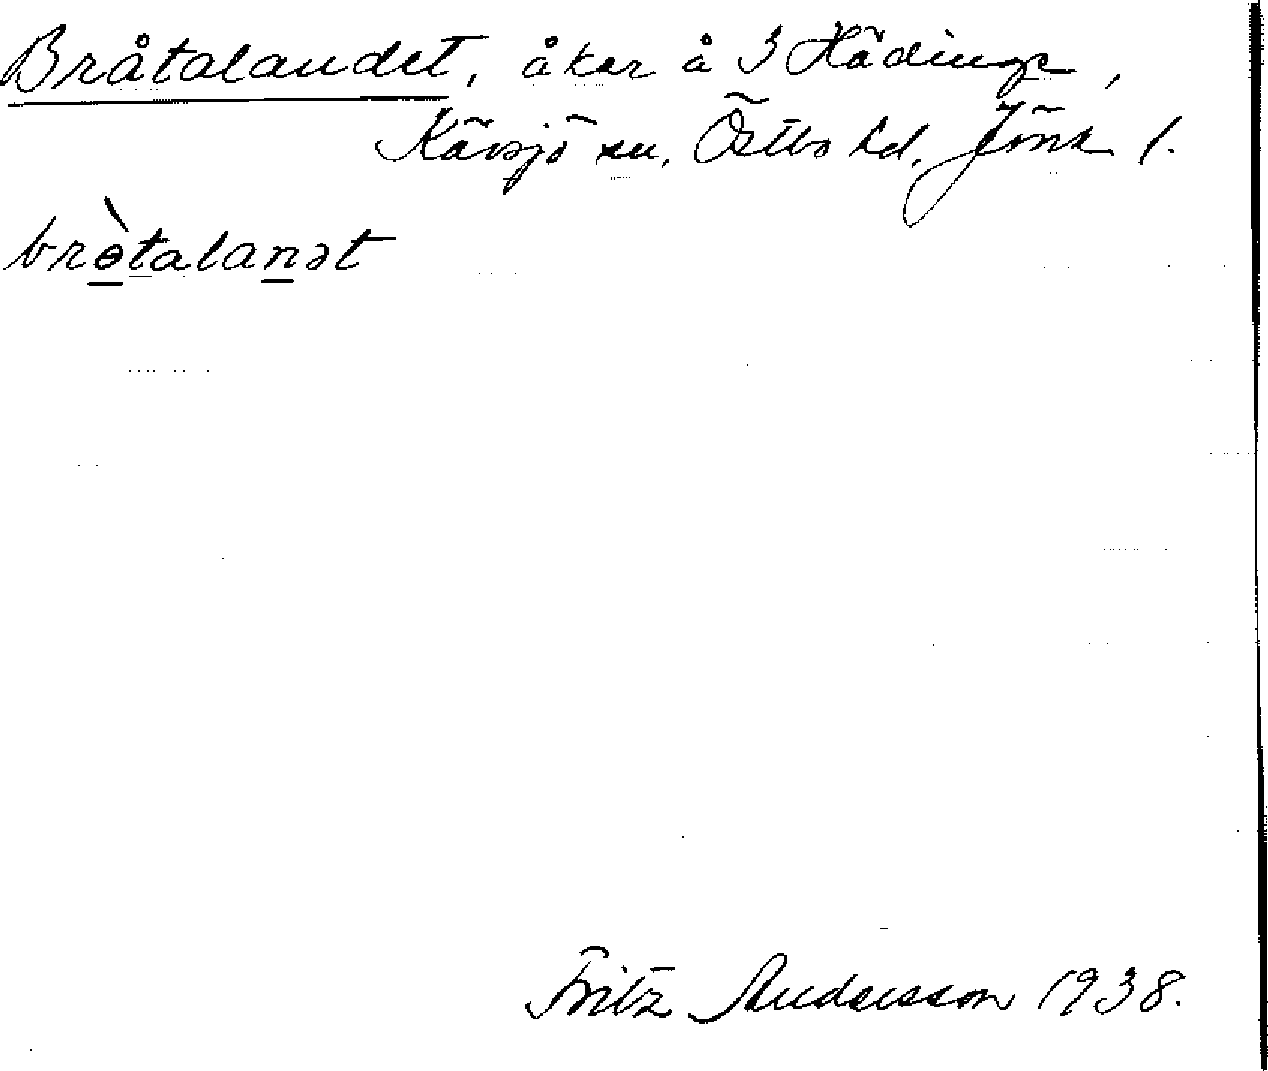 Bråtalandet, åker å 3 Hädinge,
Kävsjö sn, Östbo hd, Jönk l.
bròtalanət
Fritz Andersson 1938.